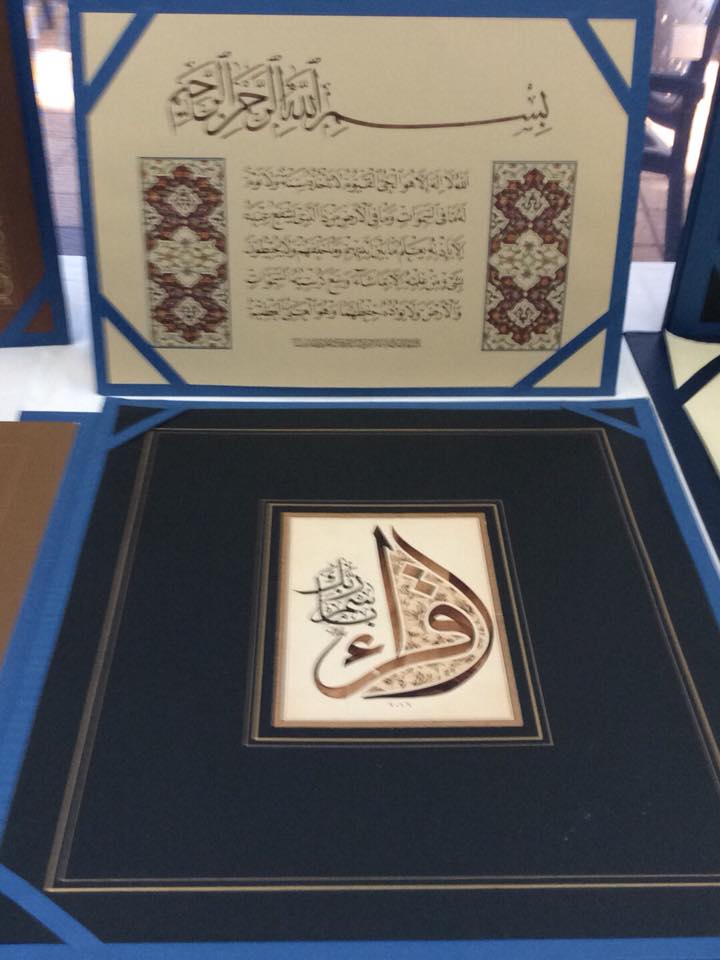 بسم الله الرحمن الرحيم
الله لا إله إلا هو الحي القيوم لا تأخذه سنة ولا نوم
له ما في السموات وما في الأرض من ذا الذي يشفع عنده
إلا بإذنه يعلم ما بين أيديهم وما خلفهم ولا يحيطون
بشيء من علمه إلا بما شاء وسع كرسيه السموات
والأرض ولا يؤده حفظهما وهو العلي العظيم
اقرأ
باسم ربك
٢٠١٦